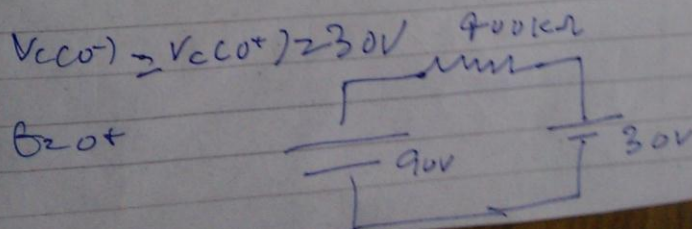 Vc(0-) = Vc(0+) = 30V
400kΩ
t=0+
90V
30V